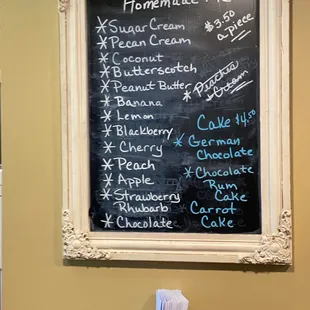 Homemade
$3.50
a-piece
* Sugar Cream
* Pecan Cream
* Coconut
* Butterscotch
* Peanut Butter
* Banana
* Lemon
* Blackberry
* Cherry
* Peach
* Apple
* Strawberry
Rhubarb
* Chocolate
* Peaches
& Cream
Cake $4.50
* German
Chocolate
* Chocolate
Rum
Cake
* Carrot
Cake